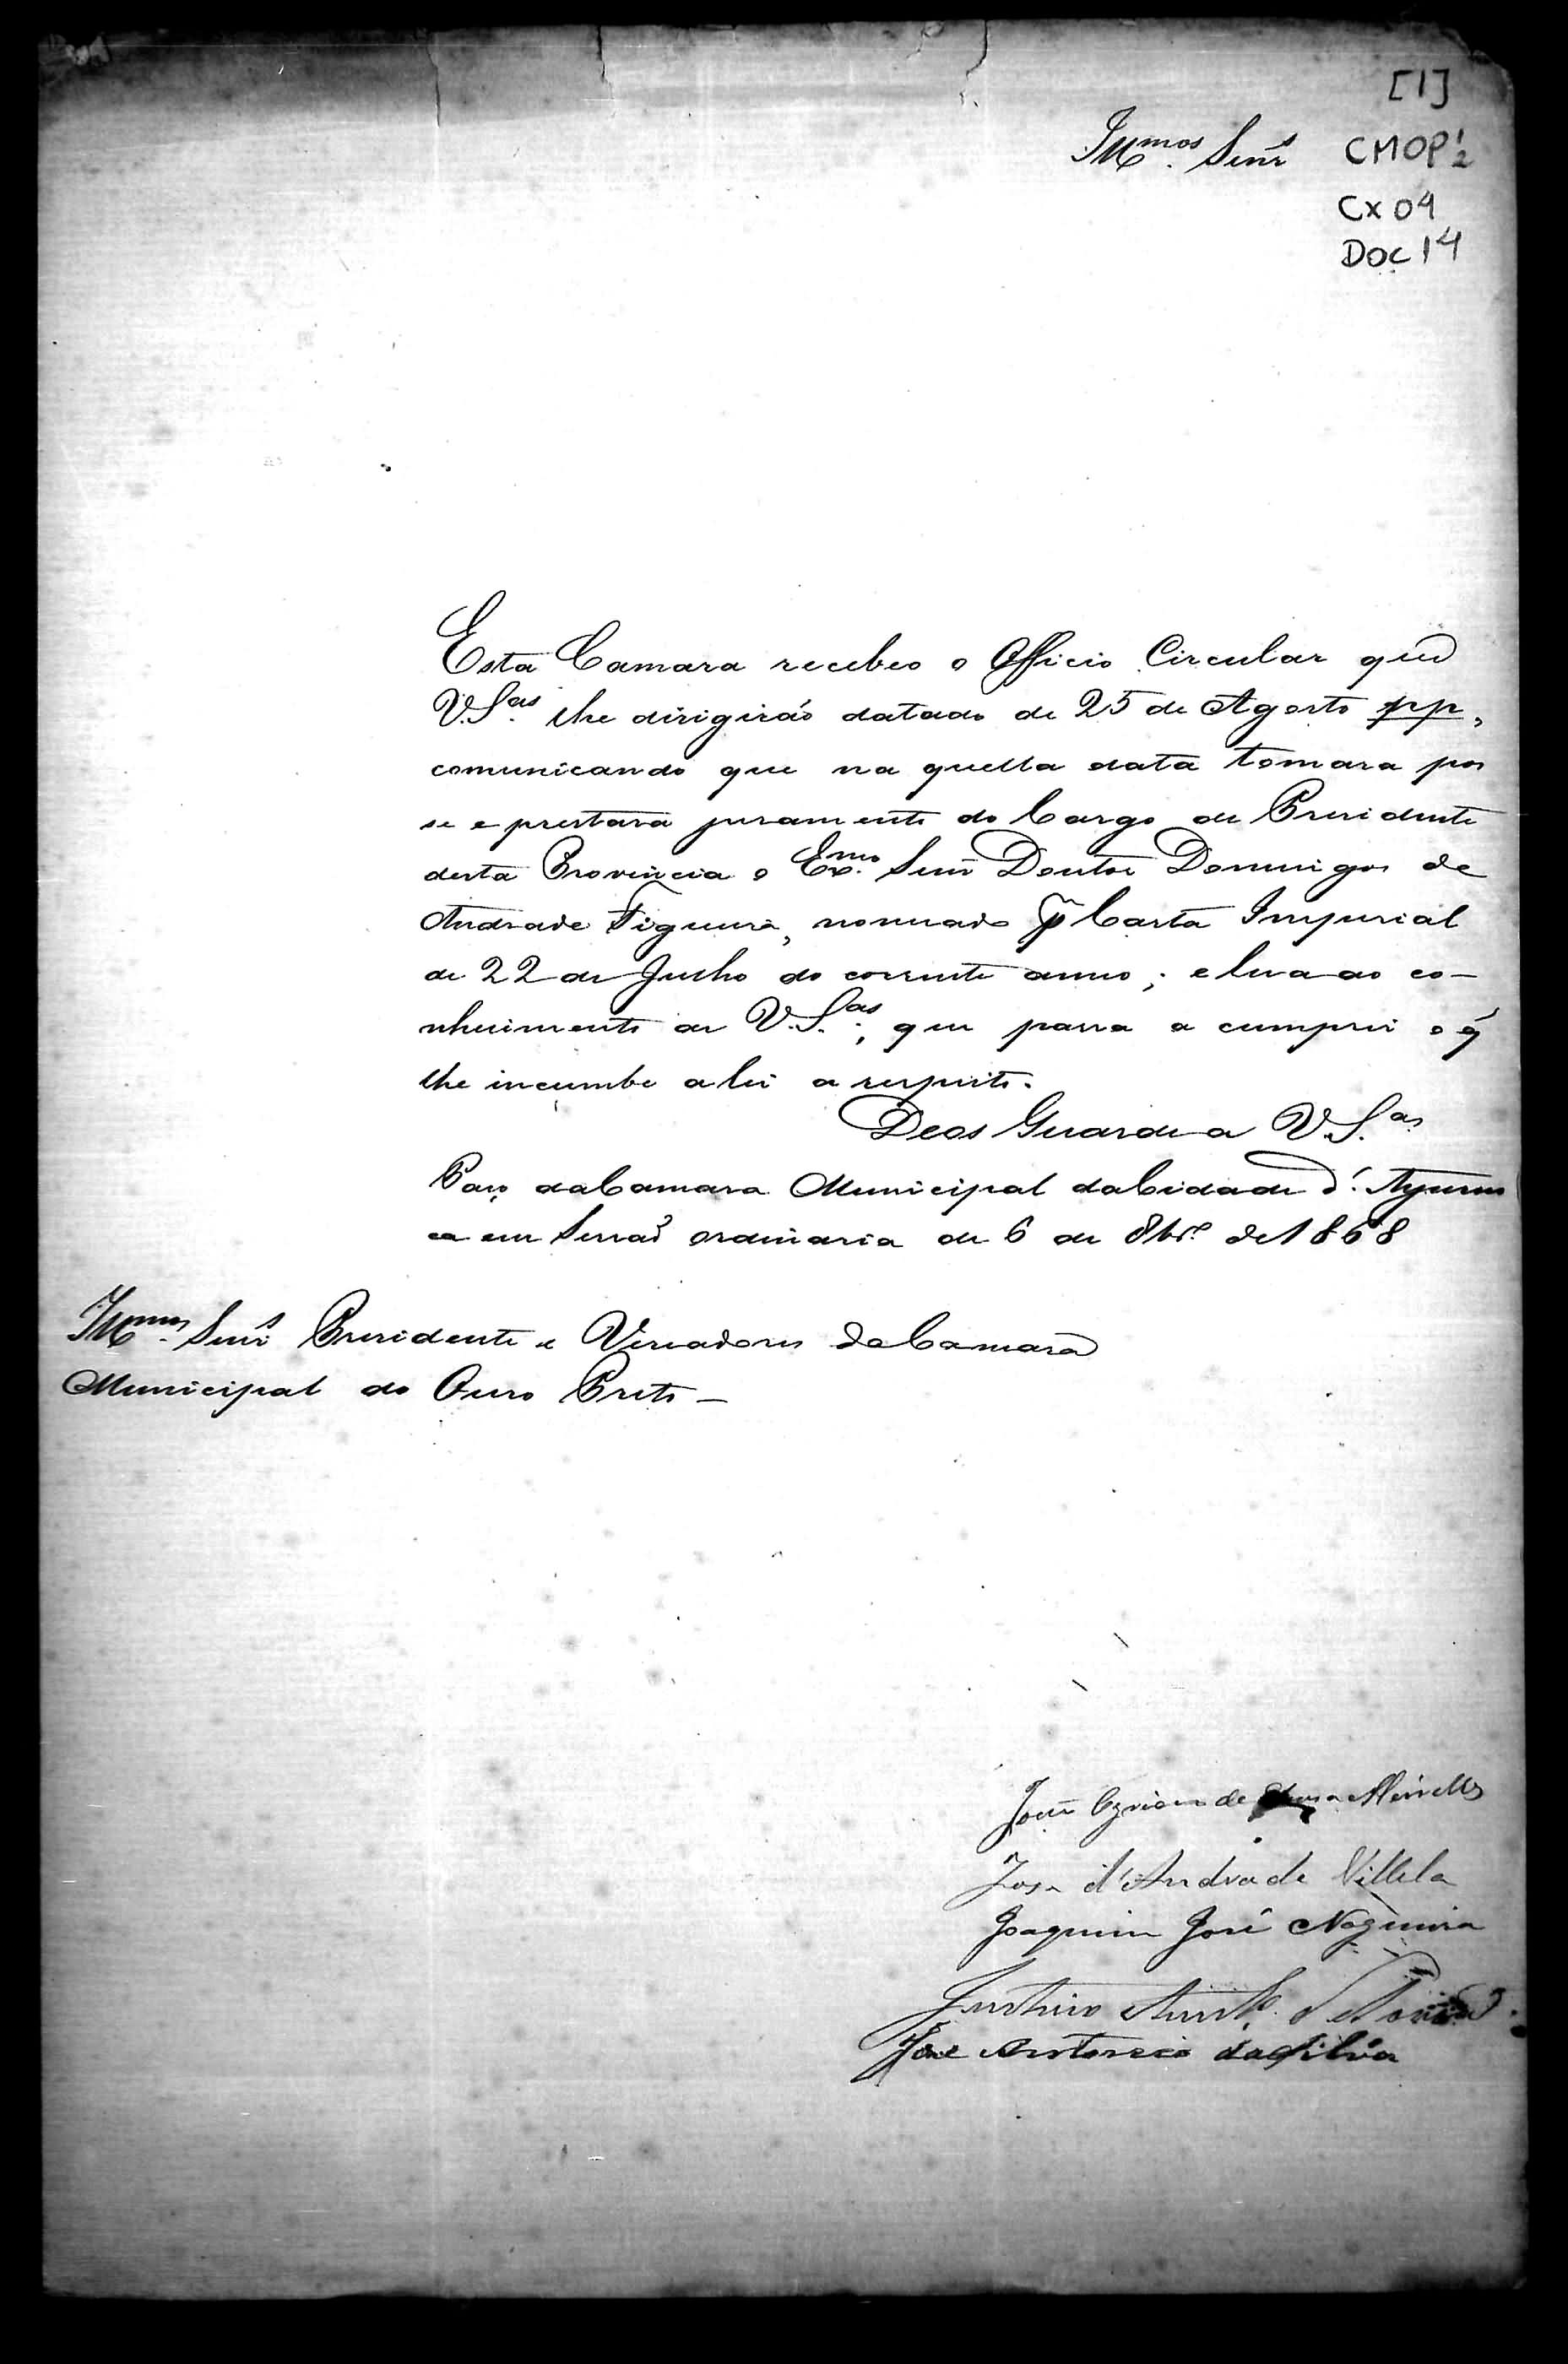 [1]
Illmos. Senrs
CMOP 1/2
Cx 04
Doc 14
Esta Camara recebeo o Officio Circular que
V.Sas. lhe dirigirão datado de 25 de Agosto pp,
comunicando que na quella data tomara pos
se e prestara juramento do Cargo de Presidente
desta Provincia o Exmo. Senr Doutor Domingos de
Andrade Figueira, nomeado p Carta Imperial
de 22 de Julho do corrente anno; e leva ao co-
nhecimento de V.Sas.; que passa a cumprir o q̃
lhe incumbe a lei a respeito.
Deos Guarde a V.S.as
Paço da Camara Municipal da Cidade d'Ayuruo
ca em Sessão ordinaria de 6 de 8br.º de 1868
Illmos. Senrs Presidente e Vereadores da Camara
Municipal do Ouro Preto -
de Meirelles
José d'Andrade Villela
Joaquim José Nogueira
José Antonio da Silva